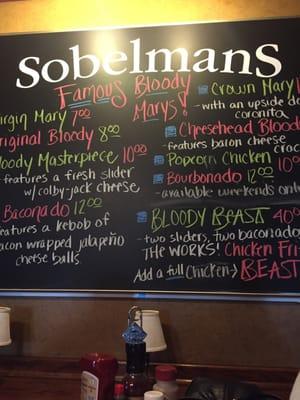 Sobelmans
Famous Bloody
Marys!
Virgin Mary 7.00
Original Bloody 8.00
Bloody Masterpiece 10.00
- features a fresh slider
w/ colby-jack cheese
Baconado 12.00
features a kebob of
bacon wrapped jalapeño
cheese balls
Crown Mary
- with an upside d
coronita
Cheesehead Blood
- features bacon cheese
Popcorn Chicken 10
Bourbonado 12.00
- available weekends onl
BLOODY BEAST 40
- two sliders, two baconado
THE WORKS! Chicken Fri
Add a full Chicken → BEAST